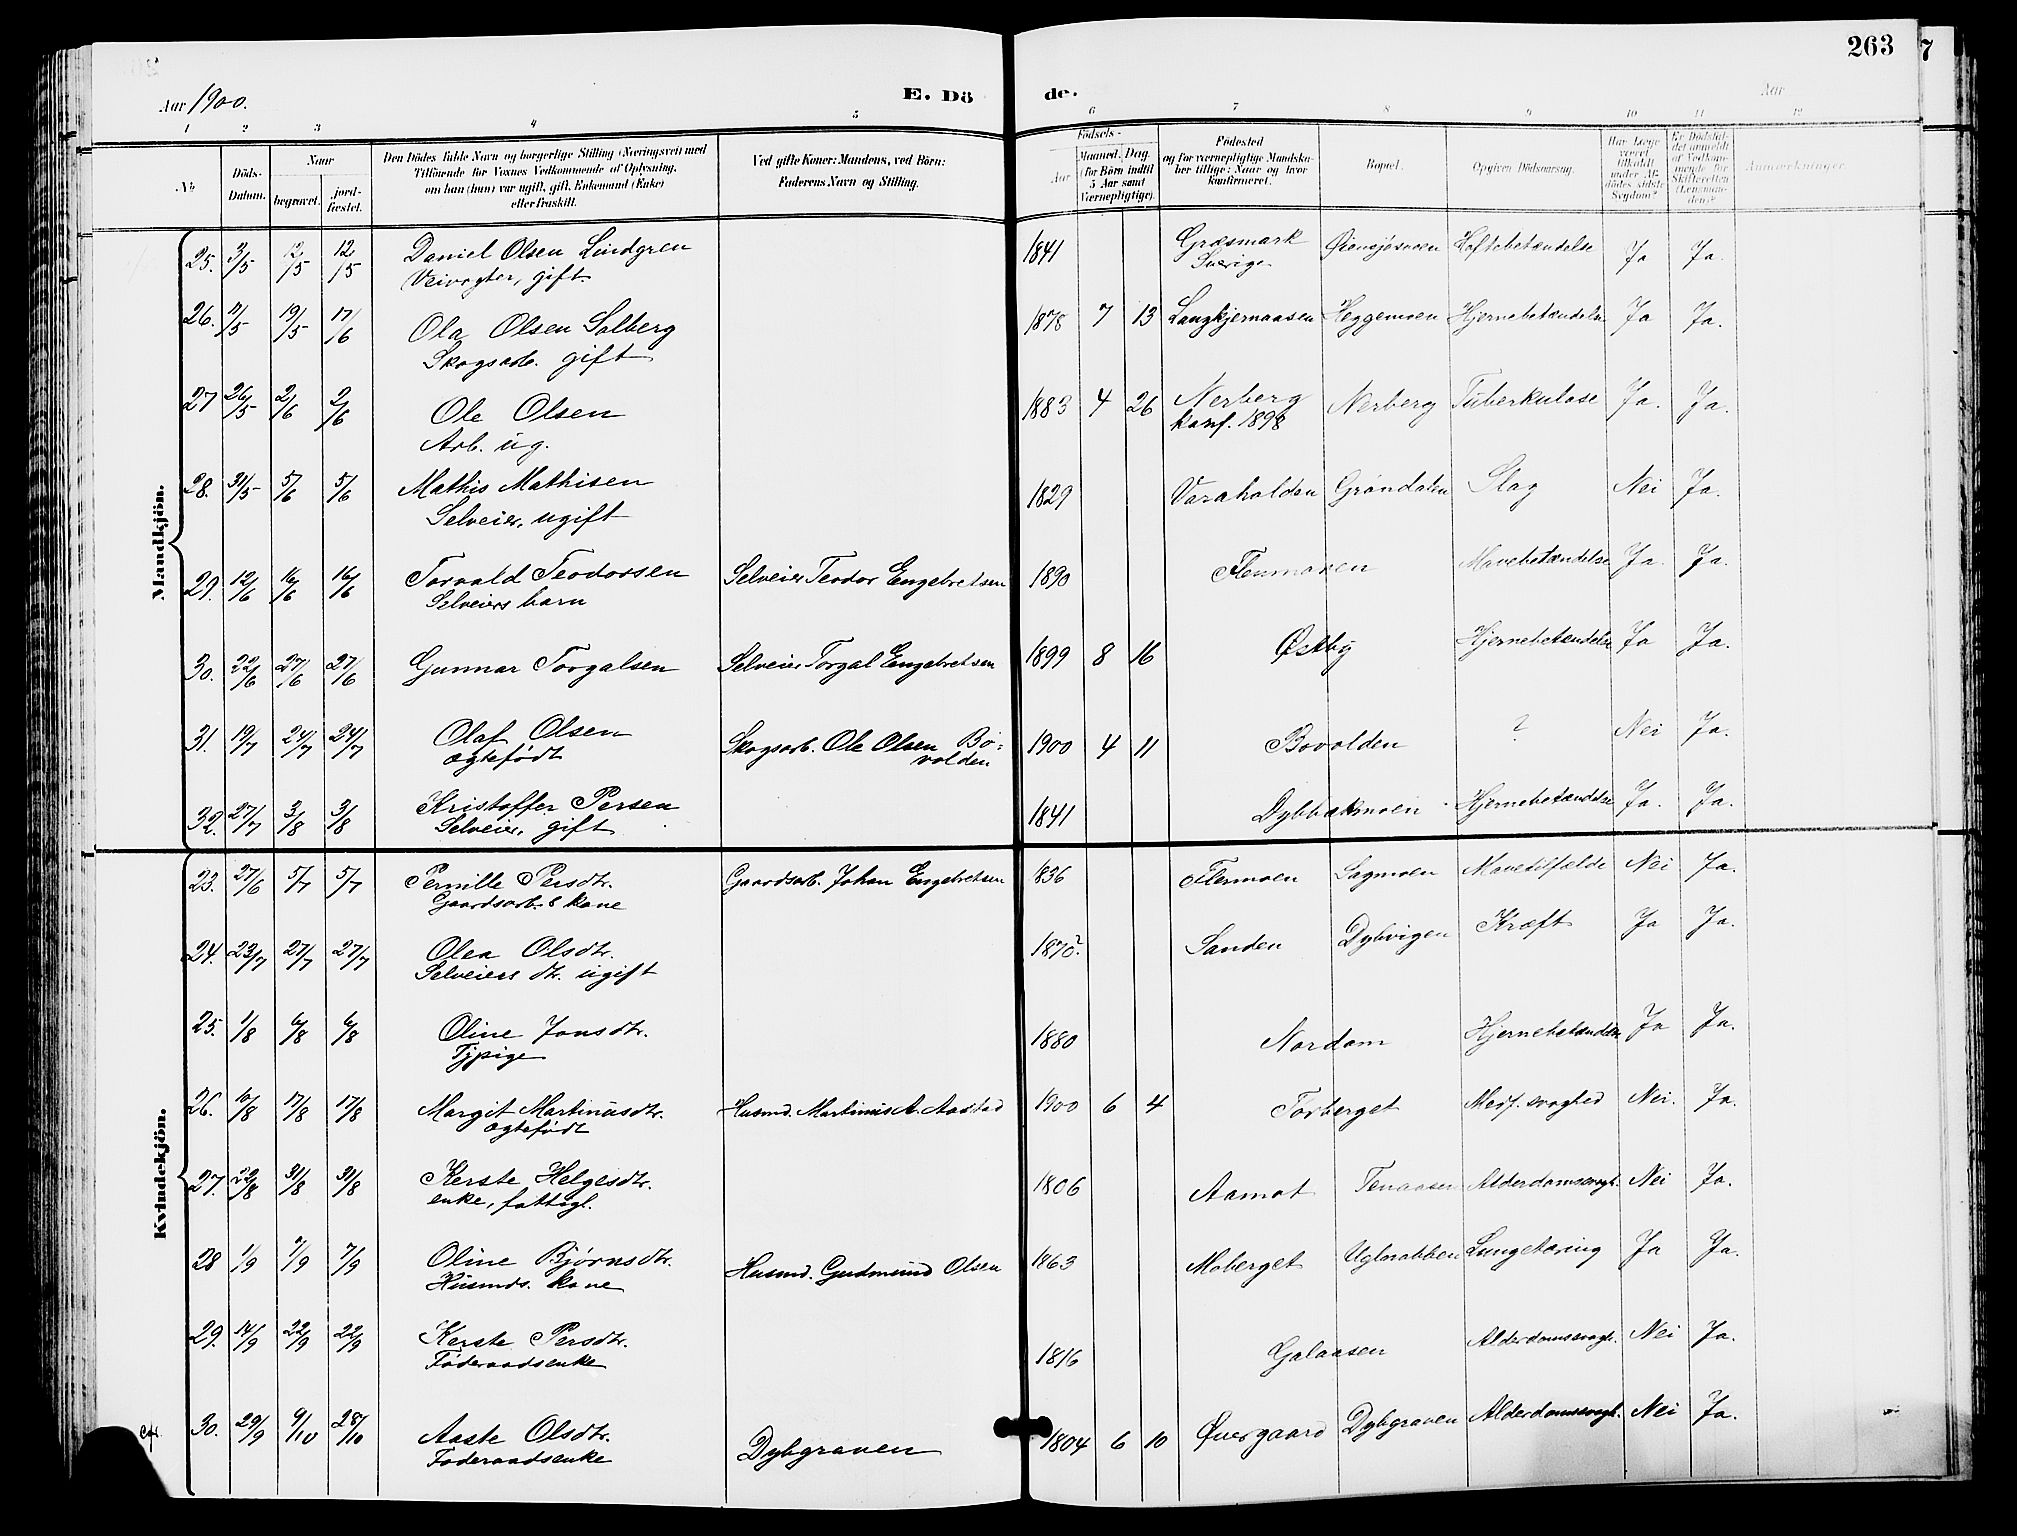 263
7
Aar 1900.
E. Dö de.
Aar
1 2 3 4 5 6 7 8 9 10 11 12
No
Döds-Datum.
Naar
begravet.
jord-fæstet.
Den Dödes fulde Navn og borgerlige Stilling (Næringsvei) med
Tilföiende for Voxnes Vedkommende af Oplysning,
om han (hun) var ugift, gift, Enkemand (Enke)
eller fraskilt.
Ved gifte Koner: Mandens, ved Börn:
Faderens Navn og Stilling.
Födsels-
Aar
Maaned. Dag.
(for Börn indtil
5 Aar samt
Værnepligtige).
Födested
og for værnepligtige Mandska-
ber tillige: Naar og hvor
konfirmeret.
Bopæl.
Opgiven Dödsaarsag.
Har Læge
været
tilkaldt
under Af-
dödes sidste
Sygdom?
Er Dödsfal-
det anmeldt
af Vedkom-
mende for
Skifteretten
(Lensman-
den)?
Anmærkninger.
Mandkjön.
25. 3/5 12/5 12/5 Daniel Olsen Lindgren 1841 Græsmark Øiensjømoen Hoftebetændelse Ja Ja.
Veivogter, gift. Sverige
26. 11/5 19/5 17/6 Ola Olsen Solberg 1878 7 13 Langkjernaasen Heggemoen Hjernebetændelse Ja Ja.
Skogsarb. gift
27 26/5 2/6 2/6 Ole Olsen 1883 4 26 Nerberg Nerberg Tuberkulose Ja. Ja.
Arb. ug. konf. 1898
28. 31/5 5/6 5/6 Mathis Mathisen 1829 Varaholden Grøndalen Slag Nei Ja.
Selveier, ugift
29. 12/6 16/6 16/6 Torvald Teodorsen Selveier Teodor Engebretsen 1890 Flenmoen Mavebetændelse Ja. Ja.
Selveiers barn
30. 22/6 27/6 27/6 Gunnar Torgalsen Selveier Torgal Engebretsen 1899 8 16 Østby Hjernebetændelse Ja Ja.
31. 19/7 24/7 24/7 Olaf Olsen Skogsarb. Ole Olsen Bo- 1900 4 11 Bovolden ? Nei Ja.
ægtefødt volden
32. 27/7 3/8 3/8 Kristoffer Persen 1841 Dybbakmoen Hjernebetændelse Ja. Ja.
Selveier, gift
Kvindekjön.
23. 27/6 5/7 5/7 Pernille Persdtr. Gaardsarb. Johan Engebretsen 1836 Flermoen Sagmoen Mavetilfælde Nei Ja.
Gaardsarb.s kone
24. 23/7 27/7 27/7 Olea Olsdtr. 1870? Sanden Dybvigen Kræft Ja Ja.
Selveiers dtr. ugift
25. 1/8 6/8 6/8 Oline Jonsdtr. 1880 Nordom Hjernebetændelse Ja Ja.
Tjpige
26. 10/8 17/8 17/8 Margit Martinusdtr. Husmd. Martinus A. Aastad 1900 6 4 Torberget Medf. svaghed Nei. Ja.
ægtefødt
27. 22/8 31/8 31/8 Kerste Helgesdtr. 1806 Aamot Tenaasen Alderdomssvagh. Nei Ja.
enke, fattigl.
28 1/9 7/9 7/9 Oline Bjørnsdtr. Husmd. Gudmund Olsen 1863 Moberget Uglnabben Lungetæring Ja Ja.
Husmds. kone
29. 14/9 22/9 22/9 Kerste Persdtr. 1816 Galaasen Alderdomssvagh. Nei Ja.
Føderaadsenke
30. 29/9 9/10 28/10 Aaste Olsdtr. Dybgraven 1804 6 10 Øvergaard Dybgraven Alderdomssvagh. Nei Ja.
Føderaadsenke